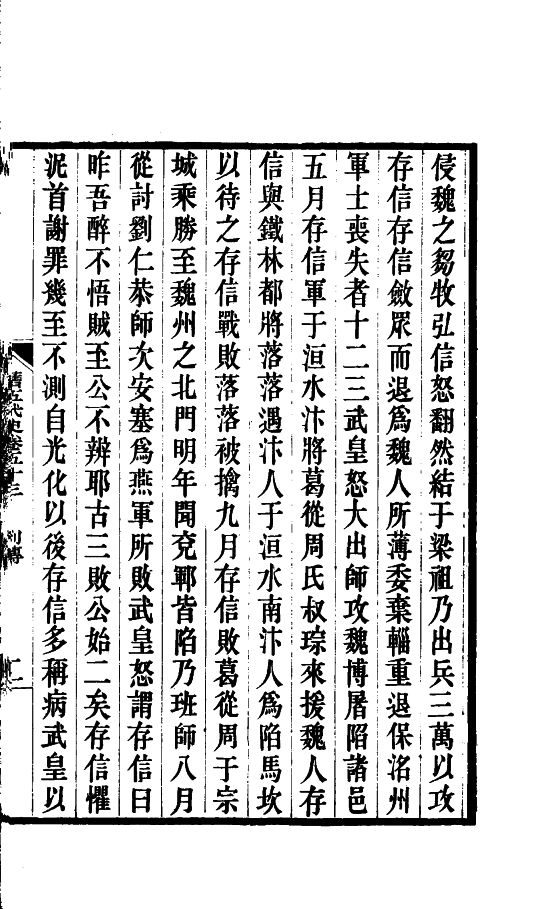 侵魏之芻牧弘信怒翻然結于梁祖乃出兵三萬以攻
存信存信斂眾而退爲魏人所薄委棄輜重退保洺州
軍士喪失者十二三武皇怒大出師攻魏博屠陷諸邑
五月存信軍于洹水汴將葛從周氏叔琮來援魏人存
信與鐵林都將落落遇汴人于洹水南汴人爲陷馬坎
以待之存信戰敗落落被擒九月存信敗葛從周于宗
城乘勝至魏州之北門明年聞兗鄆皆陷乃班師八月
從討劉仁恭師次安塞爲燕軍所敗武皇怒謂存信曰
昨吾醉不悟賊至公不辨耶古三敗公始二矣存信懼
泥首謝罪幾至不測自光化以後存信多稱病武皇以
舊五代史卷五十三 列傳